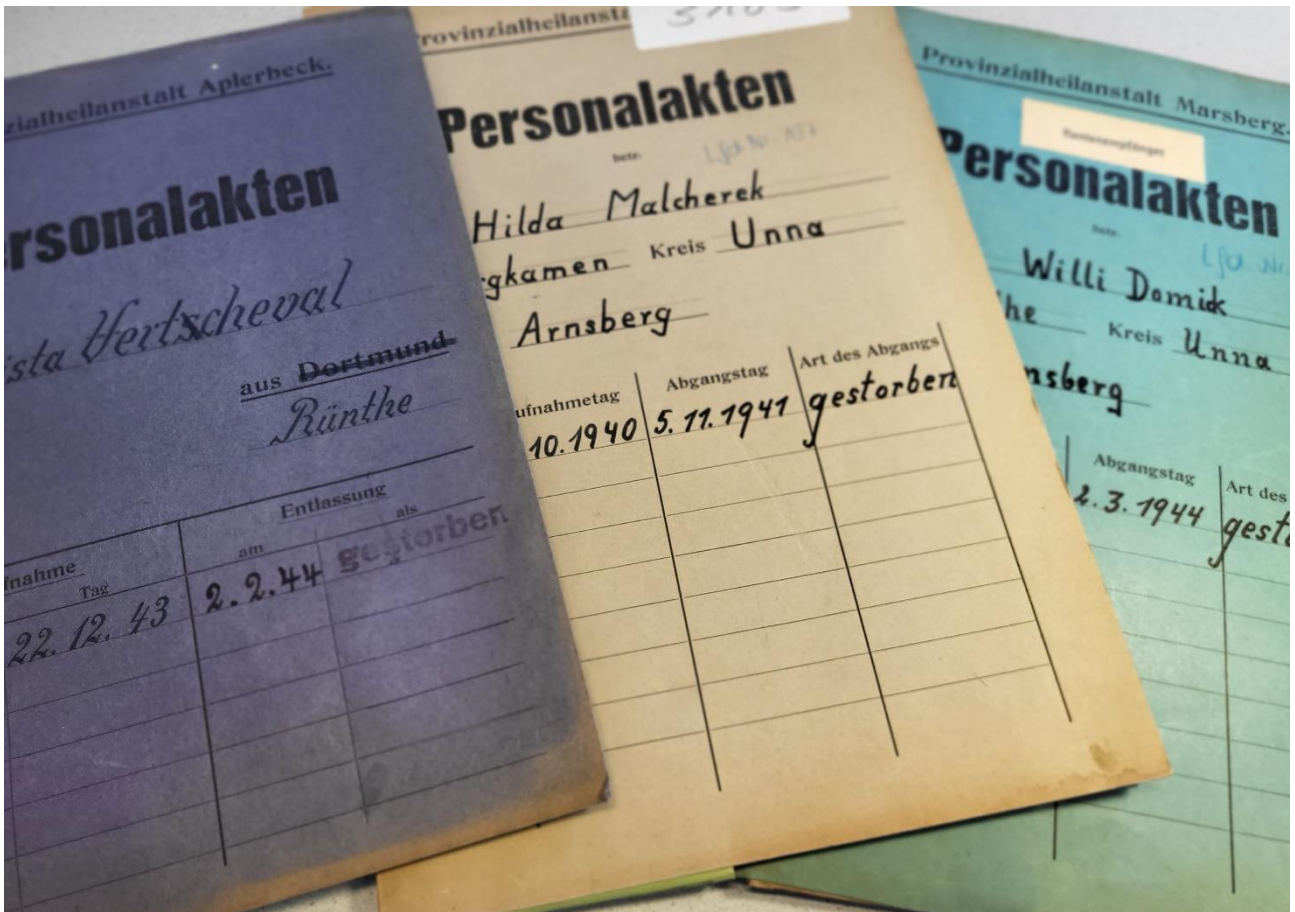 zialheilanstalt Aplerbeck.
ersonalakten
ista Vertscheval
aus Dortmund
Rünthe
fnahme
Entlassung
Tag
am
als
22. 12. 43
2. 2. 44
gestorben
rovinzialheilansta
Personalakten
betr.
Lfd. Nr. 137
Hilda Malcherek
gkamen Kreis Unna
Arnsberg
ufnahmetag
Abgangstag
Art des Abgangs
10.1940
5. 11. 1941
gestorben
Provinzialheilanstalt Marsberg.
Rentenempfänger
Personalakten
betr.
Lfd. Nr.
Willi Domik
he Kreis Unna
nsberg
Abgangstag
Art des
2. 3. 1944
gesto